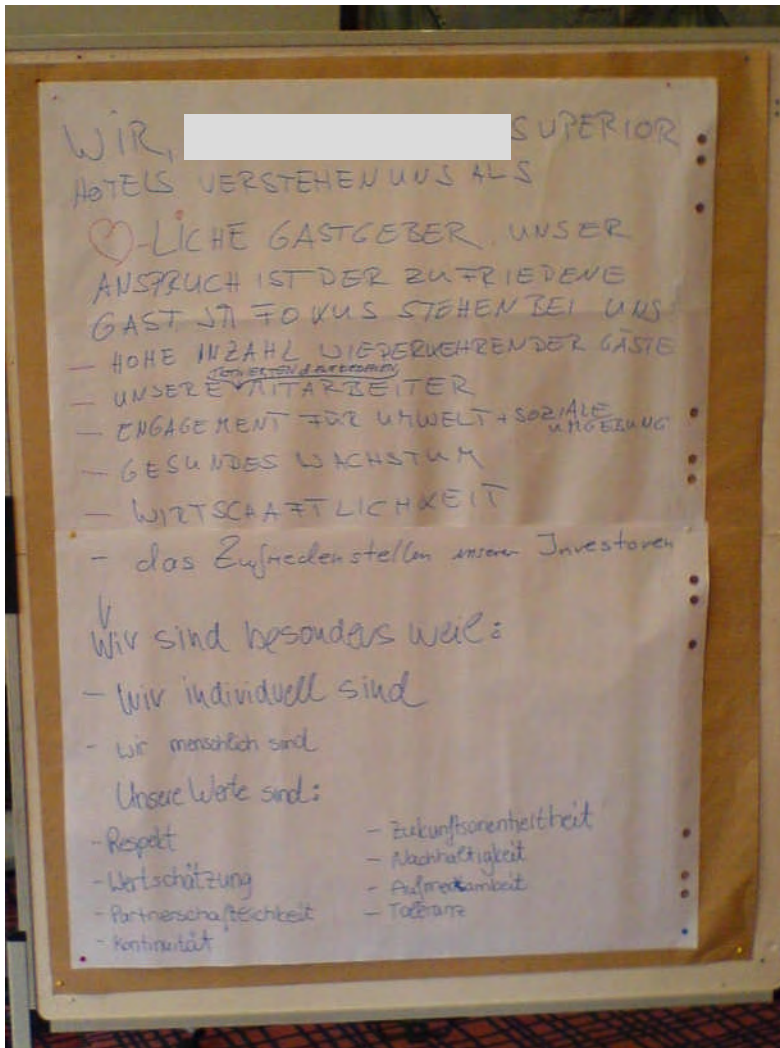 WIR, SUPERIOR
HOTELS VERSTEHEN UNS ALS
-LICHE GASTGEBER. UNSER
ANSPRUCH IST DER ZUFRIEDENE
GAST IM FOKUS STEHEN BEI UNS
- HOHE ANZAHL WIEDERKEHRENDER GÄSTE
- UNSERE MITARBEITER
- ENGAGEMENT FÜR UMWELT + SOZIALE
UMGEBUNG
- GESUNDES WACHSTUM
- WIRTSCHAFTLICHKEIT
- das Zufriedenstellen unserer Investoren
Wir sind besonders weil:
- Wir individuell sind
- wir menschlich sind
Unsere Werte sind:
- Respekt
- Wertschätzung
- Partnerschaftlichkeit
- Kontinuität
- Zukunftsorientiertheit
- Nachhaltigkeit
- Aufmerksamkeit
- Toleranz